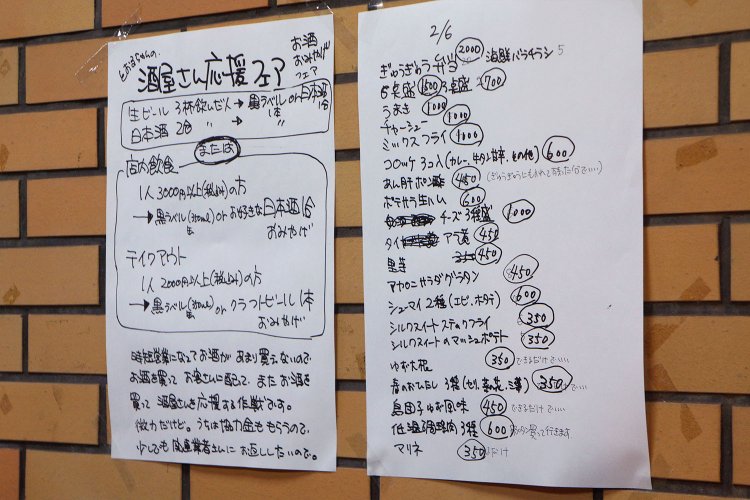 とおるちゃんの
酒屋さん応援フェア
お酒
おみやげ
フェア
生ビール 3杯飲んだ人 → 黒ラベル1本 or 日本酒1合
日本酒 2合 〃 → 〃
または
店内飲食
1人 3000円以上(税込)の方
→ 黒ラベル(350ml)1缶 or お好きな日本酒1合
おみやげ
テイクアウト
1人 2000円以上(税込)の方
→ 黒ラベル(350ml)1缶 or クラフトビール1本
おみやげ
時短営業になってお酒があまり買えないので
お酒を買ってお客さんに配って、またお酒を
買って酒屋さんを応援する作戦です。
微力だけど。うちは協力金ももらうので、
少しでも関連業者さんにお返ししたいので。
2/6
ぎゅうぎゅう弁当 2000 海鮮バラチラシ 5
5点盛 1500 3点盛 700
うまき 1000
チャーシュー 1000
ミックスフライ 1000
コロッケ 3コ入(カレー、牛タン甘辛、その他) 600
あん肝ポン酢 450
ポテサラ生ハム 600
チーズ3種盛 1000
タイ アラ煮 450
里芋 450
マカロニサラダグラタン 450
シューマイ2種(エビ、ホタテ) 600
シルクスイートスティックフライ 350
シルクスイートのマッシュポテト 350
ゆず大根 350 できるだけで…
春のおひたし3種 350 できるだけで…
鳥団子ゆず風味 450 できるだけで…
低温調理肉3種 600
マリネ 350 だけ